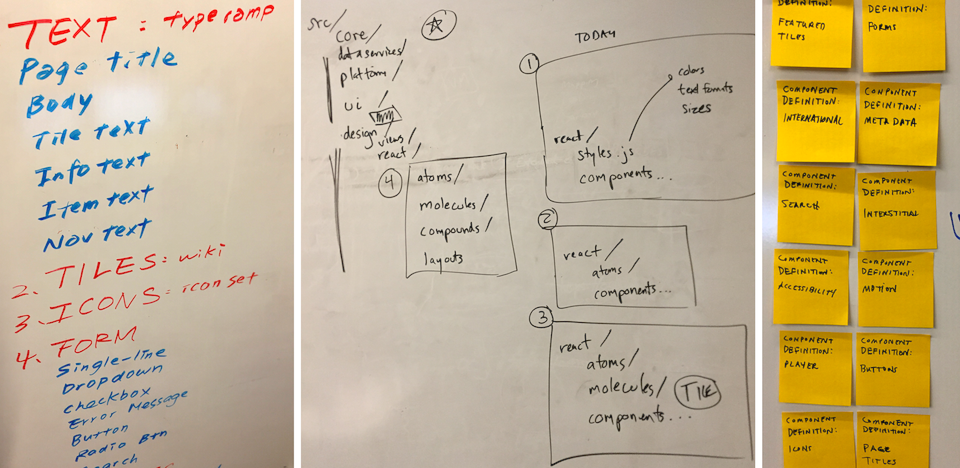 TEXT : typeramp
Page title
Body
Tile text
Info text
Item text
Nav text
2. TILES: wiki
3. ICONS: icon set
4. FORM
Single-line
Dropdown
Checkbox
Error Message
Button
Radio Btn
Search
src/
core/
dataservices/
platform/
ui/
design/
views/
react/
4
atoms/
molecules/
compounds/
layouts
TODAY
1
colors
text formats
sizes
react/
styles.js
components...
2
react/
atoms/
components...
3
react/
atoms/
molecules/
TILE
components...
DEFINITION:
FEATURED
TILES
DEFINITION:
FORMS
COMPONENT
DEFINITION:
INTERNATIONAL
COMPONENT
DEFINITION:
META DATA
COMPONENT
DEFINITION:
SEARCH
COMPONENT
DEFINITION:
INTERSTITIAL
COMPONENT
DEFINITION:
ACCESSIBILITY
COMPONENT
DEFINITION:
MOTION
COMPONENT
DEFINITION:
PLAYER
COMPONENT
DEFINITION:
BUTTONS
COMPONENT
DEFINITION:
ICONS
COMPONENT
DEFINITION:
PAGE
TITLES